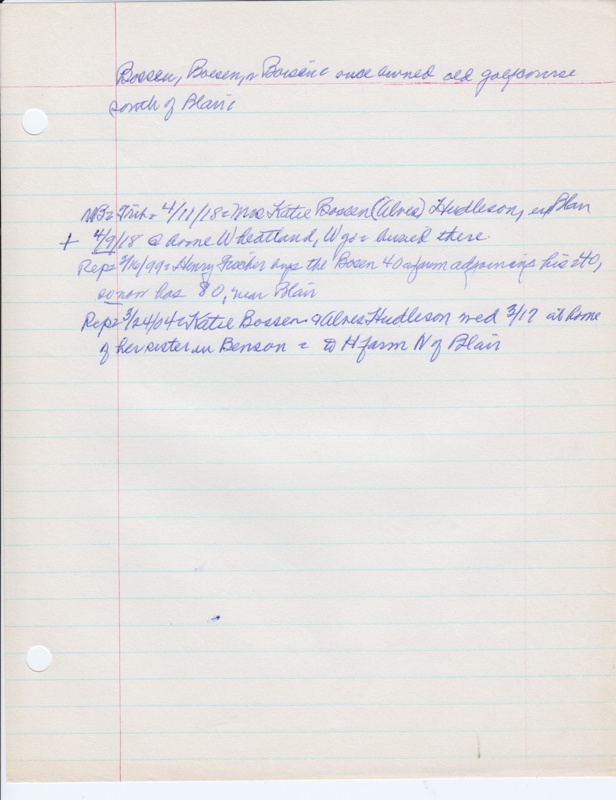 Bossen, Boesen, or Boisen = once owned old golf course
south of Blair
NB= Trib. = 4/11/18 = Mrs Katie Bossen (Alves) Hudleson, ex Blair
+ 4/9/18 @ home Wheatland, Wyo = buried there
Rep= /99 = Henry buys the Bosen 40 a farm adjoining his 40,
so now has 80, near Blair
Rep= 3/24/04 = Katie Bossen & Alves Hudleson wed 3/17 at home
of her sister in Benson = to H farm N of Blair